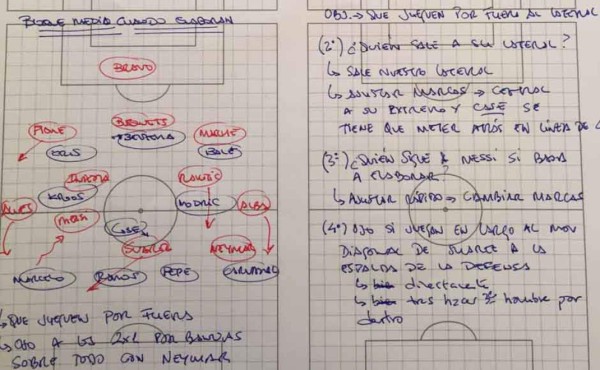 BLOQUE MEDIO CUANDO ELABORAN
BRAVO
PIQUE
BUSQUETS
MASCHE
CRIS
BENZEMA
BALE
INIESTA
RAKITIC
ALVES
KROOS
MODRIC
ALBA
MESSI
CASE
SUAREZ
NEYMAR
MARCELO
RAMOS
PEPE
CARVAJAL
↳ QUE JUEGUEN POR FUERA
↳ OJO A LOS 2x1 POR BANDAS
SOBRE TODO CON NEYMAR
OBJ. → QUE JUEGUEN POR FUERA AL LATERAL
(2º) ¿QUIÉN SALE A SU LATERAL?
↳ SALE NUESTRO LATERAL
↳ AJUSTAR MARCAS → CENTRAL
A SU EXTREMO Y CASE SE
TIENE QUE METER ATRÁS EN LÍNEA DE
(3º) ¿QUIÉN SIGUE A MESSI SI BAJA
A ELABORAR?
↳ AJUSTAR RÁPIDO → CAMBIAR MARCAS
(4º) OJO SI JUEGAN EN LARGO AL MOV
DIAGONAL DE SUAREZ A LA
ESPALDA DE LA DEFENSA
↳ directamente
↳ tras hombre por
dentro